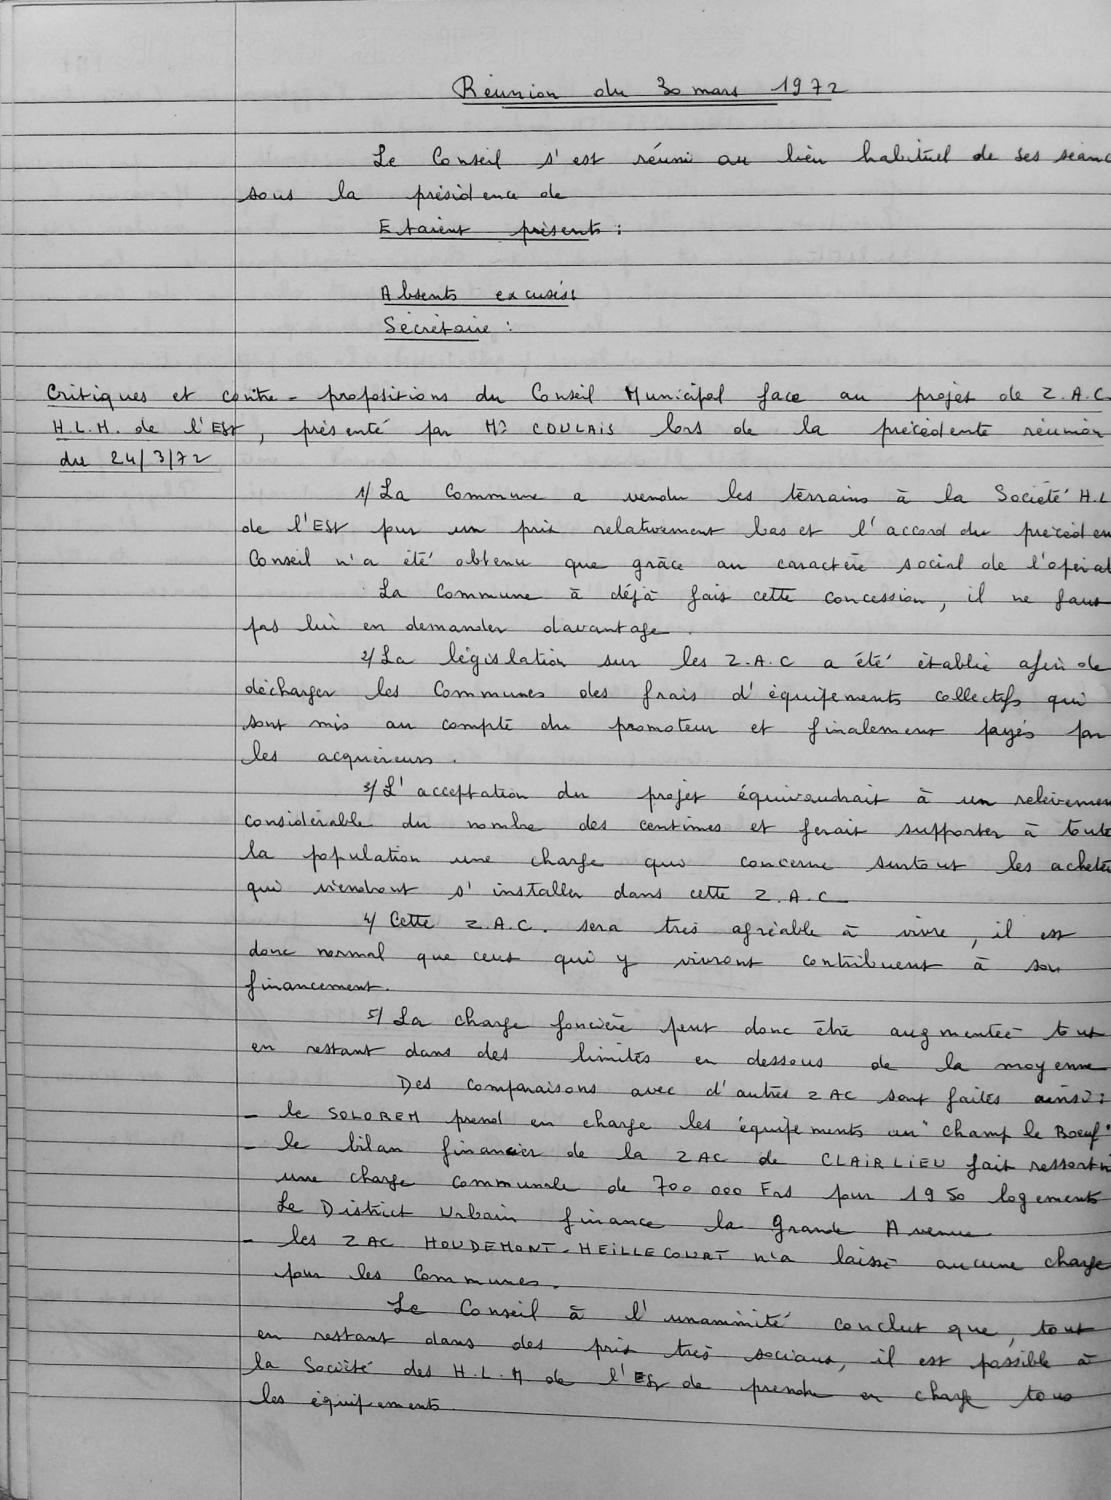 Réunion du 30 mars 1972
Le Conseil s'est réuni au lieu habituel de ses séanc
sous la présidence de
Etaient présents :
Absents excusés:
Sécrétaire :
Critiques et contre-propositions du Conseil Municipal face au projet de Z.A.C.
H.L.M. de l'Est, présenté par Mr COULAIS lors de la précédente réunion
du 24/3/72
1/ La Commune a vendu les terrains à la Société H.L
de l'Est pour un prix relativement bas et l'accord du précéden
Conseil n'a été obtenu que grâce au caractère social de l'opérat
La Commune à déjà fait cette concession, il ne faut
pas lui en demander davantage.
2/ La législation sur les Z.A.C a été établie afin de
décharger les Communes des frais d'équipements collectifs qui
sont mis au compte du promoteur et finalement payés par
les acquéreurs.
3/ L'acceptation du projet équivaudrait à un relèvemen
considérable du nombre des centimes et ferait supporter à toute
la population une charge qui concerne surtout les achete
qui viendront s'installer dans cette Z.A.C
4/ Cette Z.A.C. sera très agréable à vivre, il est
donc normal que ceux qui y vivront contribuent à son
financement.
5/ La charge foncière peut donc être augmentée tout
en restant dans des limites en dessous de la moyenne
Des comparaisons avec d'autres ZAC sont faites ainsi :
- le SOLOREM prend en charge les équipements au "Champ le Boeuf"
- le bilan financier de la ZAC de CLAIRLIEU fait ressortir
une charge communale de 700 000 Frs pour 1950 logements
Le District Urbain finance la Grande Avenue
- les ZAC HOUDEMONT-HEILLECOURT n'a laissé aucune charge
pour les Communes.
Le Conseil à l'unanimité conclut que, tout
en restant dans des prix très sociaux, il est possible à
la Société des H.L.M de l'Est de prendre en charge tous
les équipements.